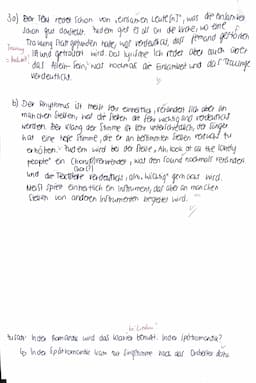 3a) Der Text redet schon von „einsamen Leute[n]", was die Einsamkeit
schon gut darstellt. Zudem geht es oft um die Kirche, wo eine
Trauung statt gefunden hatte, was verdeutlicht, dass jemand gestorben
ist und getrauert wird. Das lyrische Ich redet aber auch über
das Allein-Sein, was nochmal die Einsamkeit und das Traurige
verdeutlicht.
b) Der Rhythmus ist meist sehr einheitlich, verändert sich aber an
manchen Stellen, weil die Stellen als sehr wichtig und verdeutlicht
werden. Der Klang der Stimme ist sehr unterschiedlich, der Sänger
hat eine hohe Stimme, die er an bestimmten Stellen versucht zu
erhöhen. Zudem wird bei der Stelle „Ah, look at all the lonely
people" ein Chor verwendet, was den Sound nochmals verändert
und die Textstelle verdeutlich, als „wichtig" gemacht wird.
Meist spielt einheitlich ein Instrument, das aber an manchen
Stellen von anderen Instrumenten begleitet wird.
bei Liedern
In der Romantik wird das Klavier benutzt. In der Spätromantik?
↳ In der Spätromantik kam zur Singstimme noch das Orchester dazu